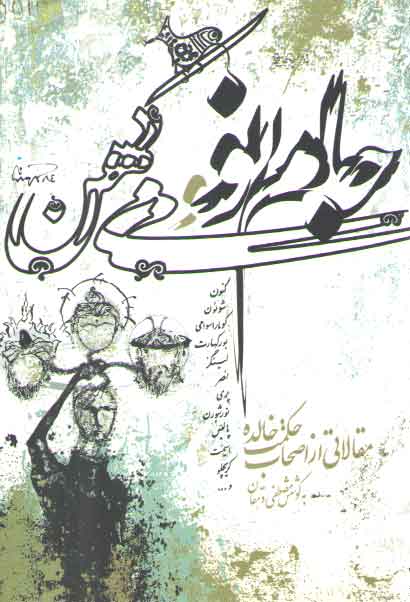 جام نو
و
می کهن
گنون
شوئون
کوماراسوامی
بورکهارت
لینگز
نصر
پری
نورثبورن
پالیس
اسمیت
کریچلو
و ...
مقالاتی از اصحاب حکمت خالده
به کوشش مصطفی دهقان